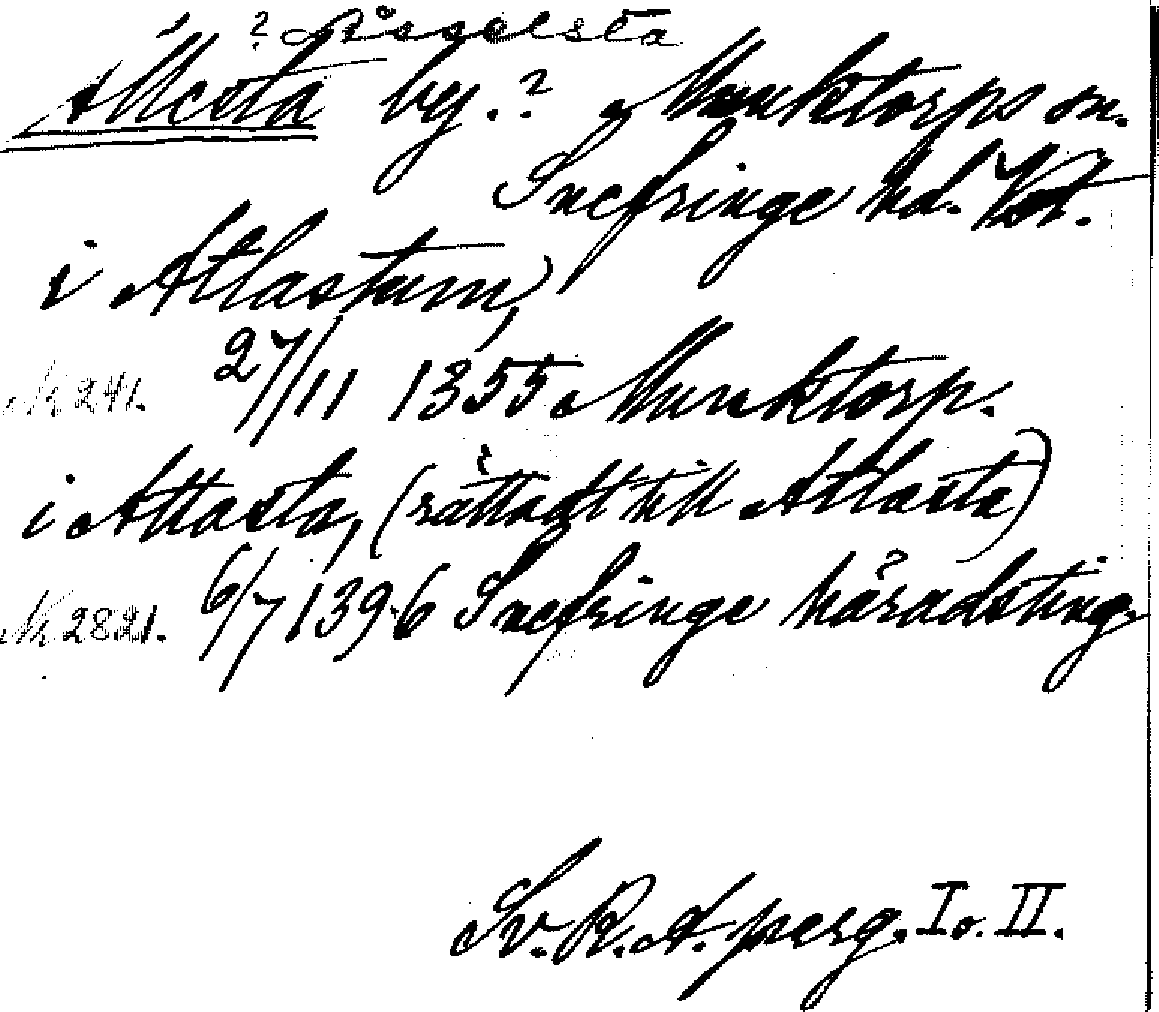 ? Ångelsta
Allesta by.? Munktorps sn.
Snefringe hd. Vstm.
i Atlastum,
N 241. 27/11 1355 Munktorp.
i Attasta, (rättadt till Atlasta)
N 2821. 6/7 1396 Snefringe häradsting
Sv. R. A. perg. I o. II.